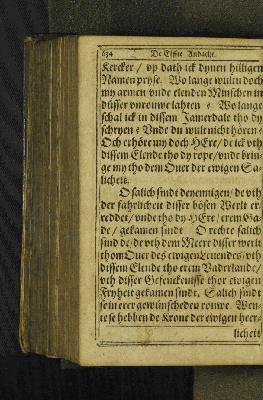 634 De Elffte Andacht.
Kercker / vp dath ick dynen hilligen
Namen pryse. Wo lange wultu doch
my armen vnde elenden Minschen in
düsser vnrouwe lahten? Wo lange
schal ick in dissem Jamerdale tho dy
schryen? Vnde du wult nicht hören?
Och erhöre my doch HEre / de ick vth
dissem Elende tho dy rope / vnde brin-
ge my tho dem Ouer der ewigen Sa-
licheit.
O salich sindt de yennigen / de vth
der fahrlicheit disser bösen Werlt er-
reddet / vnde tho dy HEre erem Ga-
de / gekamen sindt. O rechte salich
sind de / de vth dem Meere disser werlt
thom Ouer des ewigen Leuendes / vth
dissem Elende tho erem Vaderlande /
vth disser Gefenckenisse thor ewigen
Fryheit gekamen sindt. Salich sindt
se in erer gewünscheden rouwe. Wen-
te se hebben de Krone der ewigen heer-
licheit